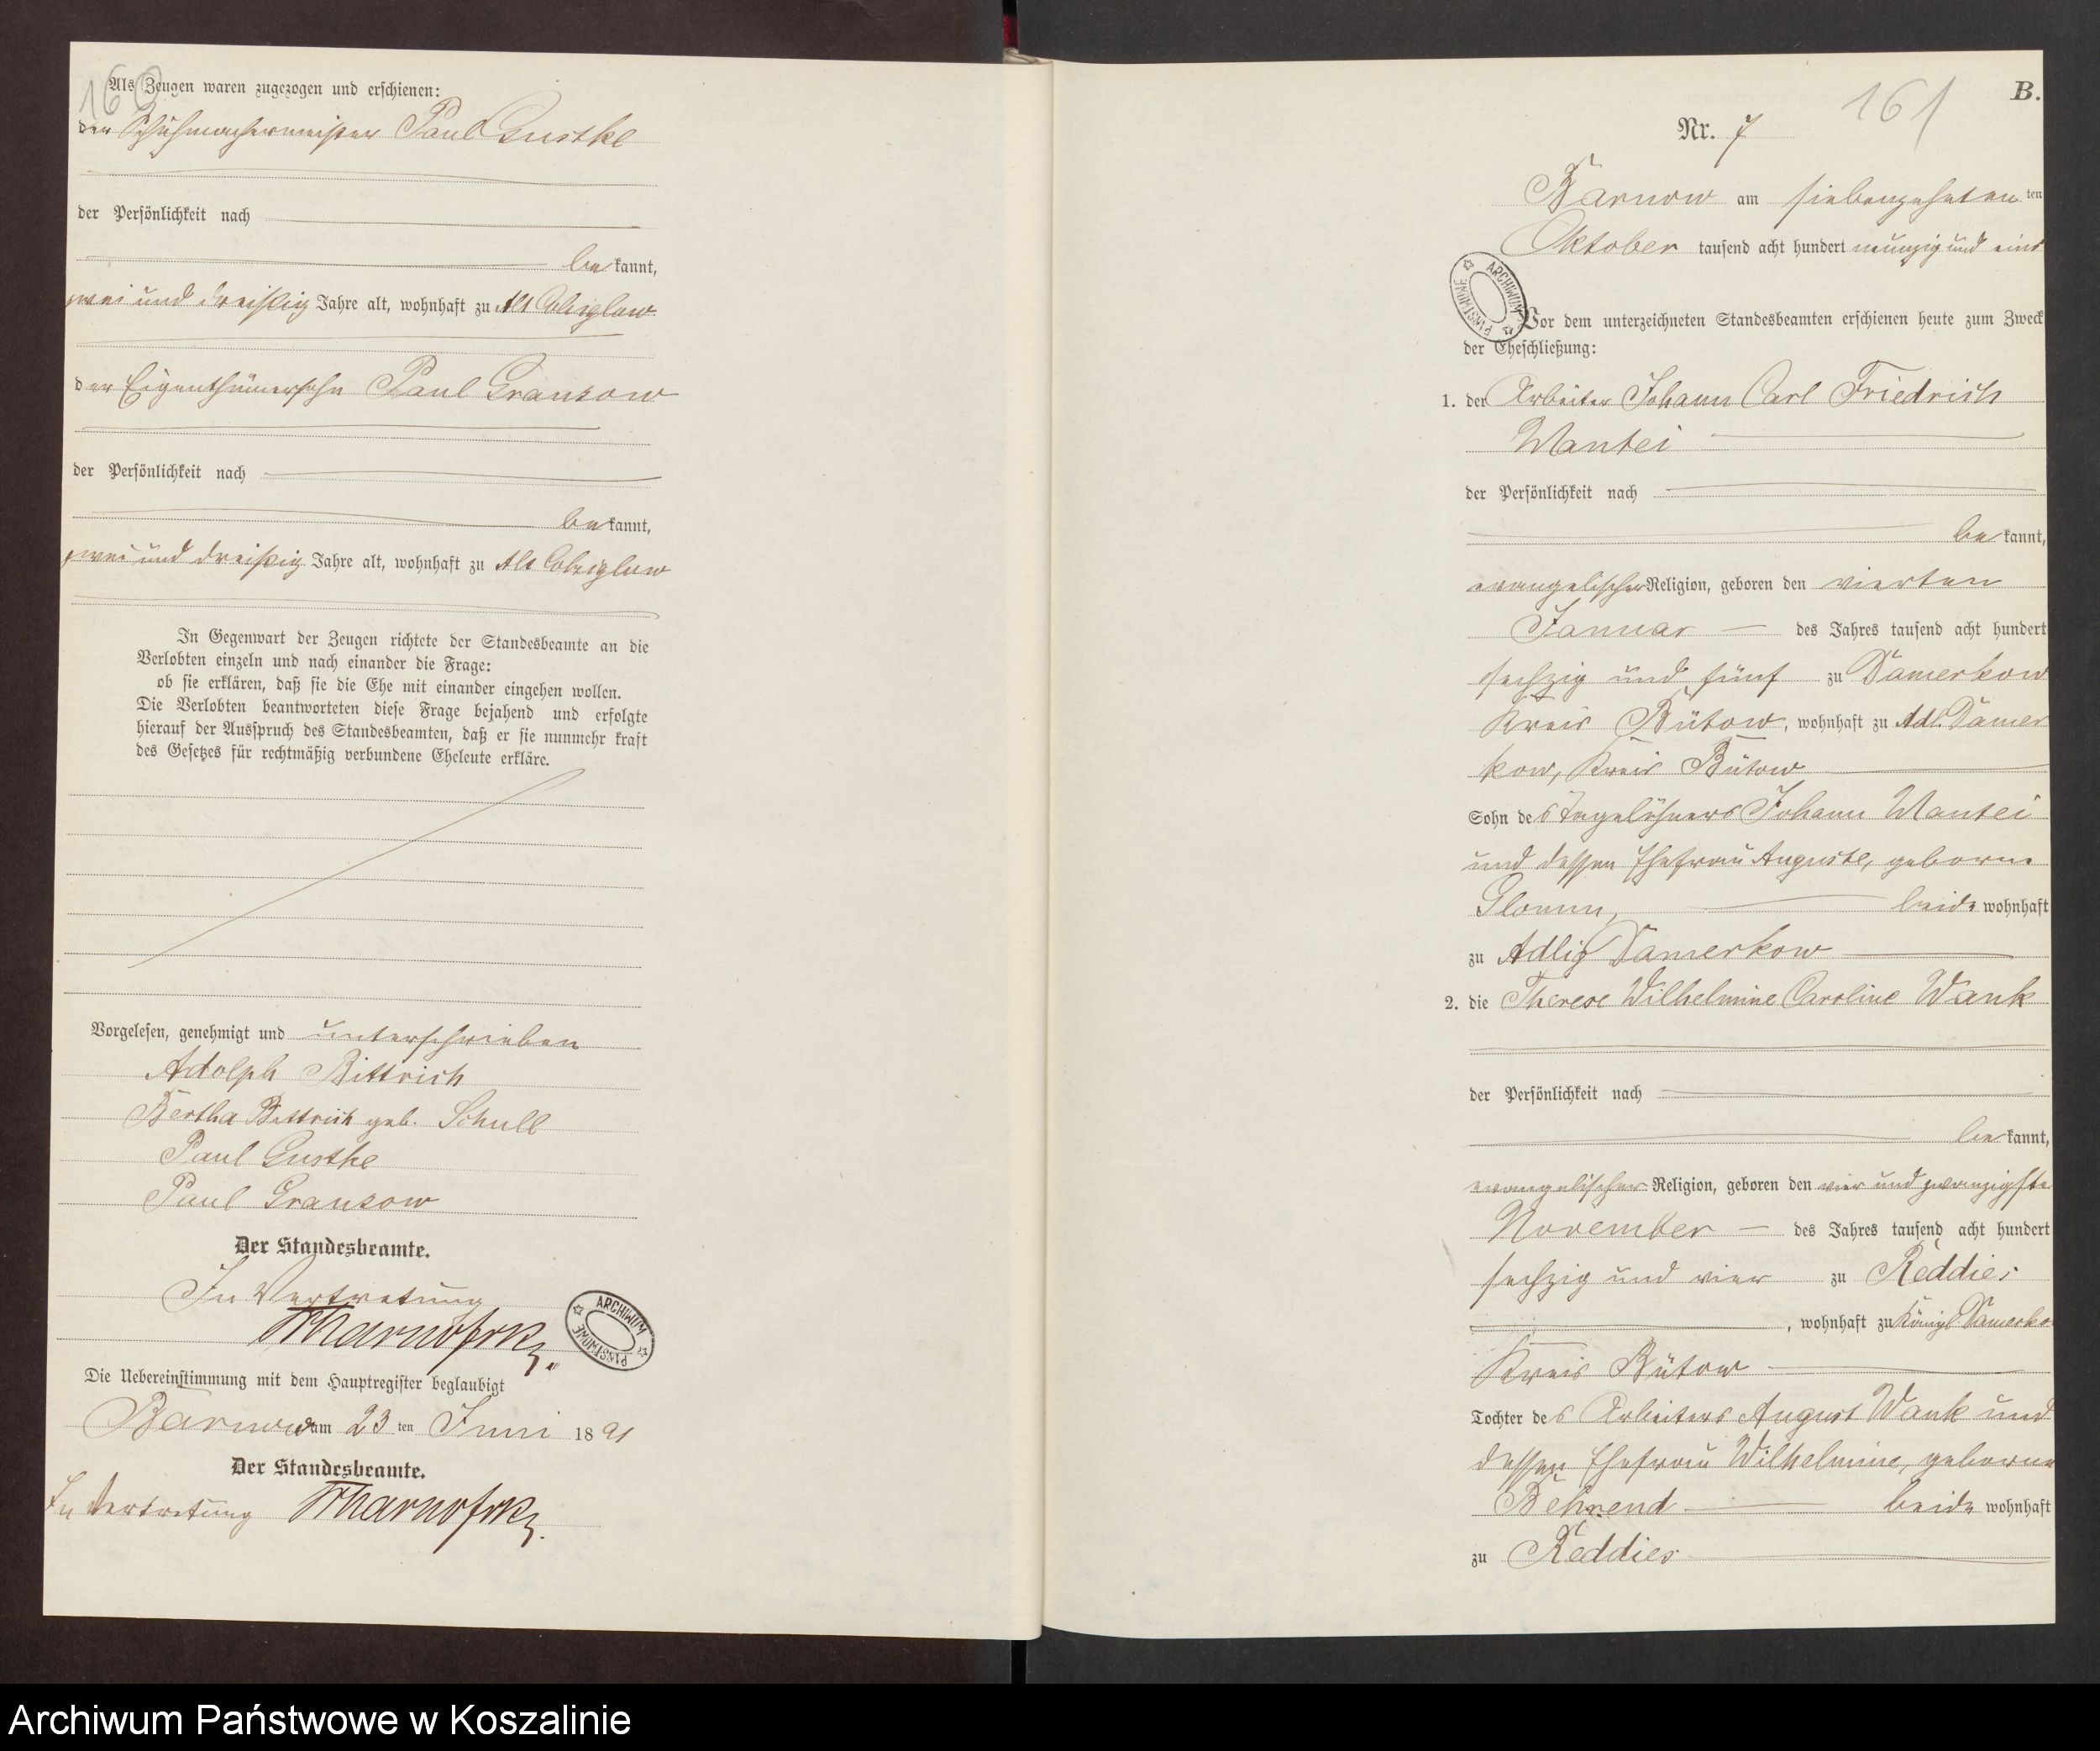 160
Als Zeugen waren zugezogen und erschienen:
der Schuhmachermeister Paul Gustke
der Persönlichkeit nach
bekannt,
zwei und dreißig Jahre alt, wohnhaft zu Alt Colziglow
der Eigenthümersohn Paul Granzow
der Persönlichkeit nach
bekannt,
zwei und dreißig Jahre alt, wohnhaft zu Alt Colziglow
In Gegenwart der Zeugen richtete der Standesbeamte an die
Verlobten einzeln und nach einander die Frage:
ob sie erklären, daß sie die Ehe mit einander eingehen wollen.
Die Verlobten beantworteten diese Frage bejahend und erfolgte
hierauf der Ausspruch des Standesbeamten, daß er sie nunmehr kraft
des Gesetzes für rechtmäßig verbundene Eheleute erkläre.
Vorgelesen, genehmigt und unterschrieben
Adolph Bittrich
Bertha Bittrich geb. Schull
Paul Gustke
Paul Granzow
Der Standesbeamte.
In Vertretung
ARCHIWUM PAŃSTWOWE
Die Uebereinstimmung mit dem Hauptregister beglaubigt
Barnow am 23 ten Juni 1891
Der Standesbeamte.
In Vertretung
161
B.
Nr. 7
Barnow am siebenzehnten ten
Oktober tausend acht hundert neunzig und eins
ARCHIWUM PAŃSTWOWE
Vor dem unterzeichneten Standesbeamten erschienen heute zum Zweck
der Eheschließung:
1. der Arbeiter Johann Carl Friedrich
Wantei
der Persönlichkeit nach
bekannt,
evangelischer Religion, geboren den vierten
Januar des Jahres tausend acht hundert
sechzig und fünf zu Damerkow
Kreis Bütow, wohnhaft zu Adl. Damer
kow, Kreis Bütow
Sohn des Tagelöhners Johann Wantei
und dessen Ehefrau Auguste, geborne
beide wohnhaft
zu Adlig Damerkow
2. die Therese Wilhelmine Caroline Wank
der Persönlichkeit nach
bekannt,
evangelischer Religion, geboren den vier und zwanzigste
November des Jahres tausend acht hundert
sechzig und vier zu Reddies
, wohnhaft zu Königl Damerko
Kreis Bütow
Tochter des Arbeiters August Wank und
dessen Ehefrau Wilhelmine, geborne
Behrend beide wohnhaft
zu Reddies
Archiwum Państwowe w Koszalinie